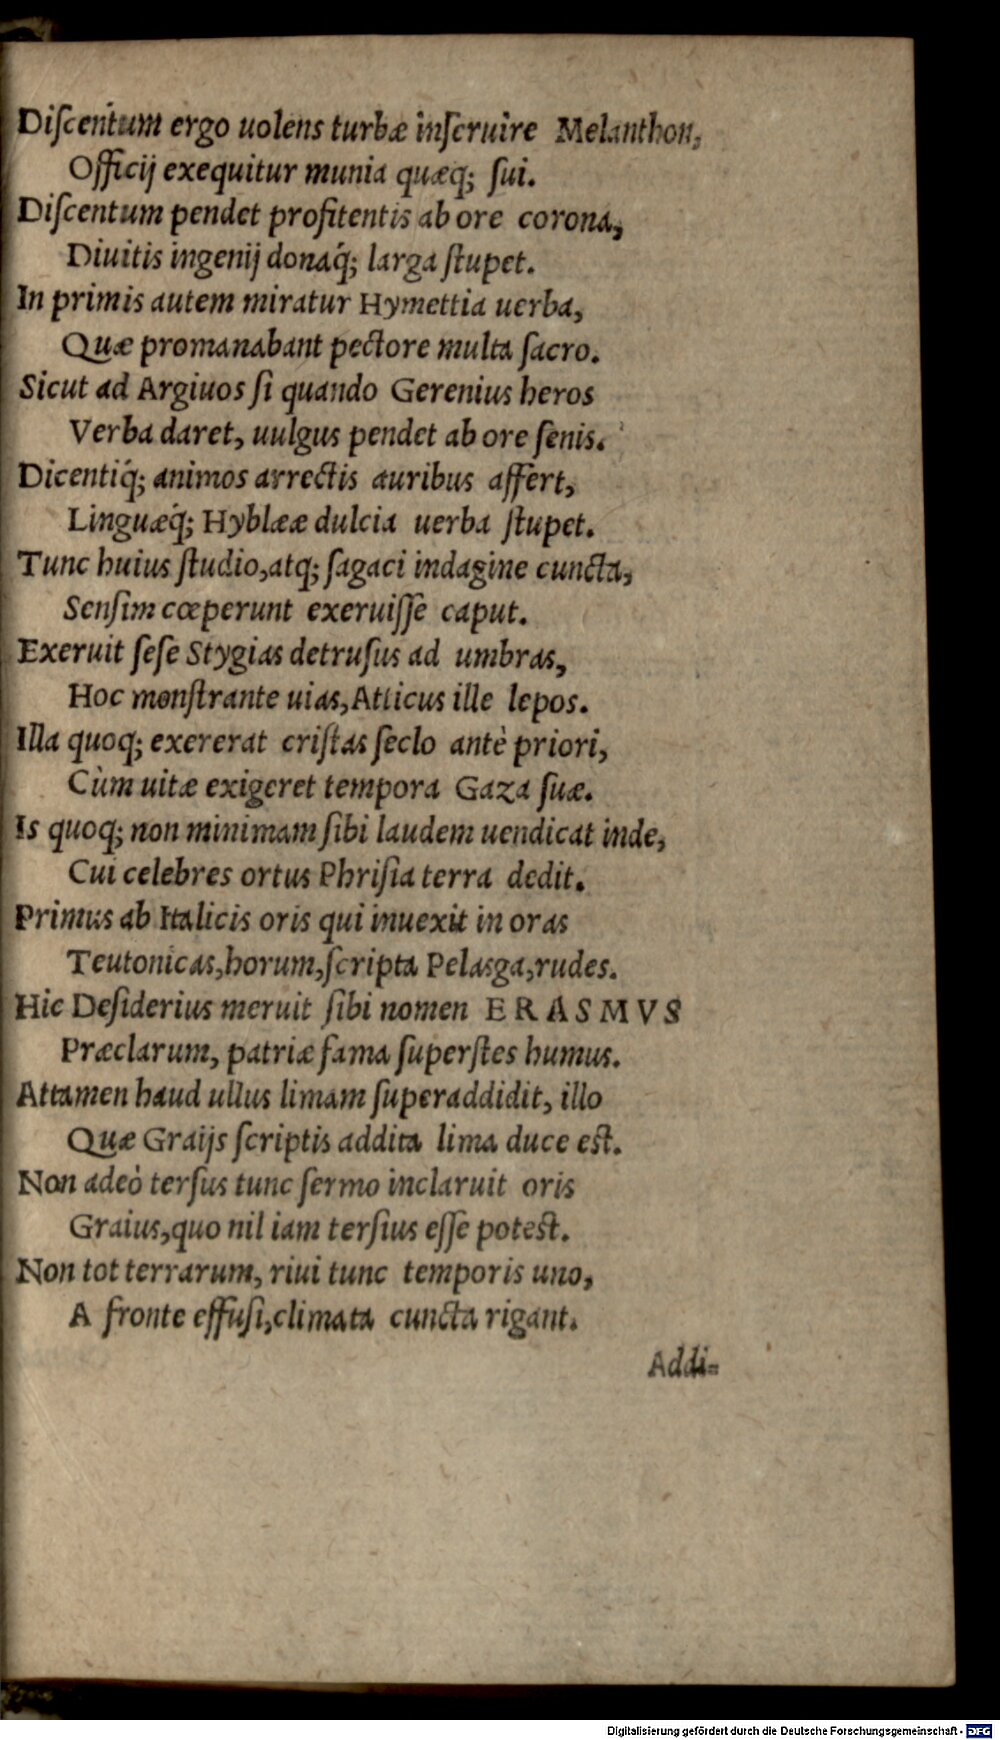 Diſcentum ergo uolens turbæ inſeruire Melanthon,
Officij exequitur munia quæq; ſui.
Diſcentum pendet profitentis ab ore corona,
Diuitis ingenij donaq́; larga ſtupet.
In primis autem miratur Hymettia uerba,
Quæ promanabant pectore multa ſacro.
Sicut ad Argiuos ſi quando Gerenius heros
Verba daret, uulgus pendet ab ore ſenis.
Dicentiq́; animos arrectis auribus affert,
Linguæq́; Hyblææ dulcia uerba ſtupet.
Tunc huius ſtudio, atq; ſagaci indagine cuncta,
Senſim cœperunt exeruiſſe caput.
Exeruit ſeſe Stygias detruſus ad umbras,
Hoc monſtrante uias, Atticus ille lepos.
Illa quoq; exererat criſtas ſeclo antè priori,
Cùm uitæ exigeret tempora Gaza ſuæ.
Is quoq; non minimam ſibi laudem uendicat inde,
Cui celebres ortus Phriſia terra dedit.
Primus ab Italicis oris qui inuexit in oras
Teutonicas, horum, ſcripta Pelasga, rudes.
Hic Deſiderius meruit ſibi nomen ERASMVS
Præclarum, patriæ fama ſuperſtes humus.
Attamen haud ullus limam ſuperaddidit, illo
Quæ Graijs ſcriptis addita lima duce eſt.
Non adeò terſus tunc ſermo inclaruit oris
Graius, quo nil iam terſius eſſe poteſt.
Non tot terrarum, riui tunc temporis uno,
A fronte effuſi, climata cuncta rigant.
Addi=
Digitalisierung gefördert durch die Deutsche Forschungsgemeinschaft - DFG